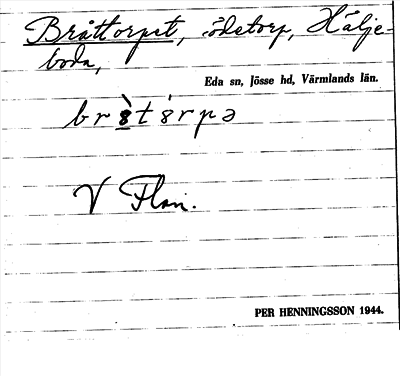 Bråttorpet, ödetorp, Hälje-
boda,
Eda sn, Jösse hd, Värmlands län.
br8̀t8́rpə
V
PER HENNINGSSON 1944.